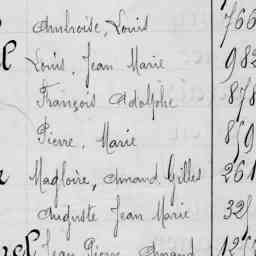 Ambroise, Louis 766
Louis, Jean Marie 982
François Adolphe 878
Pierre, Marie 819
Magloire, Amand Gilles 261
Auguste Jean Marie 32
Jean Pierre Amand 12